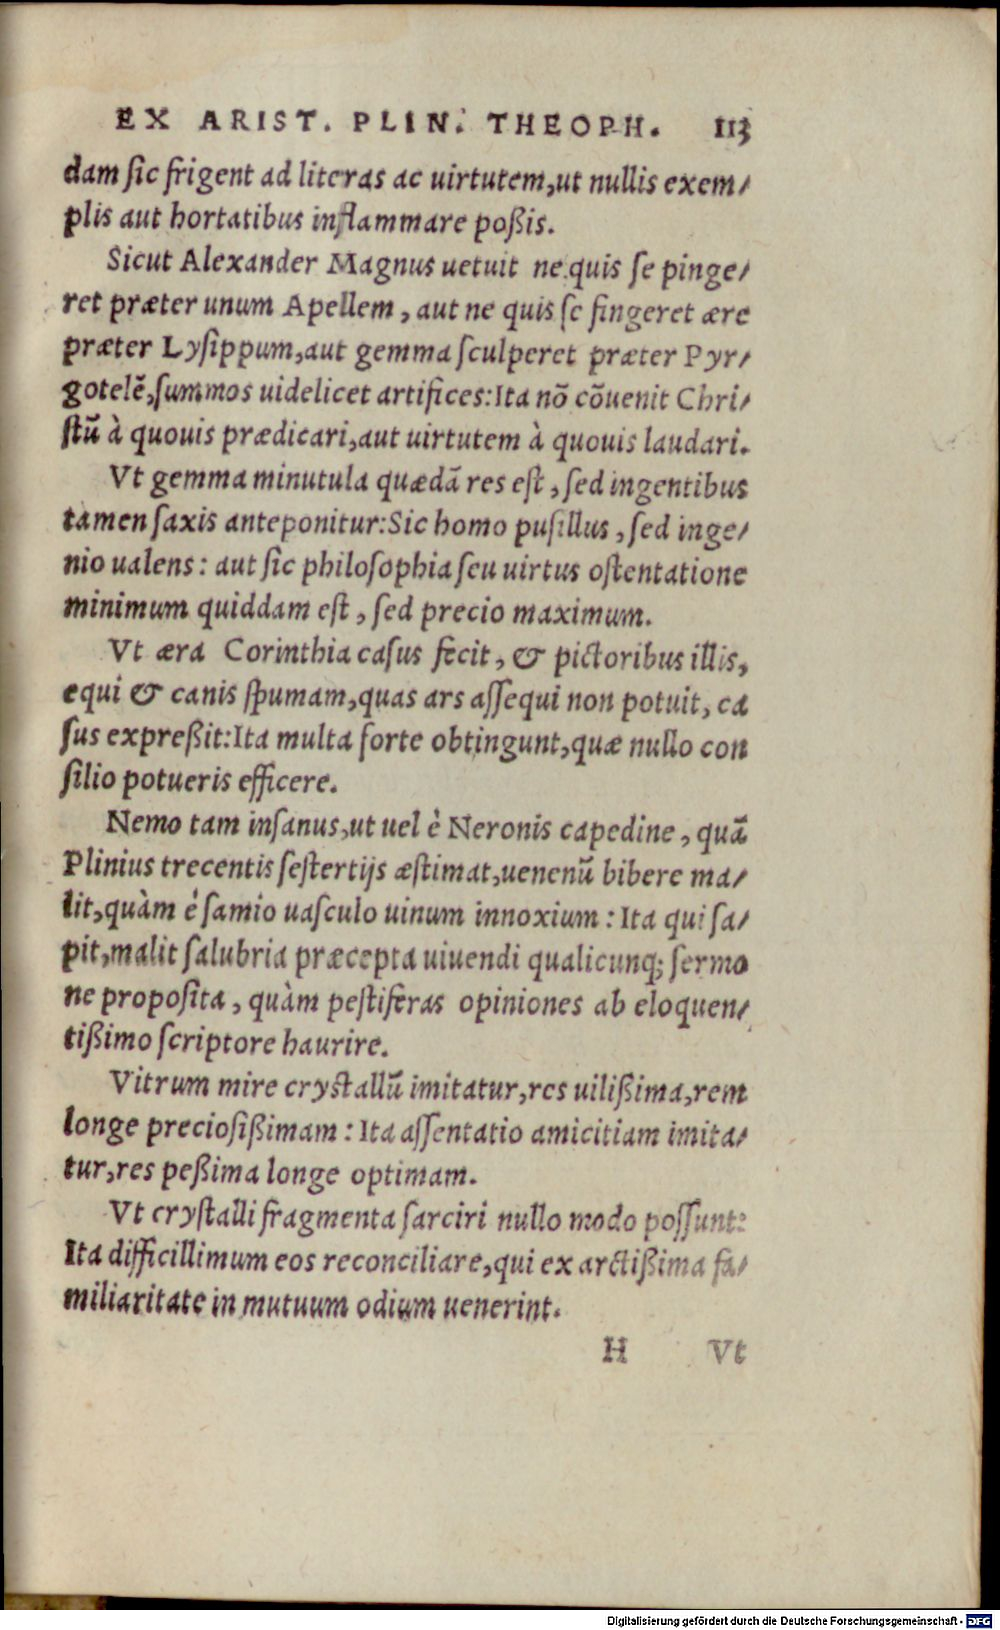 EX ARIST. PLIN. THEOPH. 113
dam ſic frigent ad literas ac uirtutem,ut nullis exem/
plis aut hortatibus inflammare poßis.
Sicut Alexander Magnus uetuit ne quis ſe pinge/
ret præter unum Apellem, aut ne quis ſe fingeret ære
præter Lyſippum,aut gemma ſculperet præter Pyr/
gotelē,ſummos uidelicet artifices:Ita nō cōuenit Chri/
ſtū à quouis prædicari,aut uirtutem à quouis laudari.
Vt gemma minutula quædā res eſt, ſed ingentibus
tamen ſaxis anteponitur:Sic homo puſillus, ſed inge/
nio ualens: aut ſic philoſophia ſeu uirtus oſtentatione
minimum quiddam eſt, ſed precio maximum.
Vt æra Corinthia caſus fecit, & pictoribus illis,
equi & canis ſpumam,quas ars aſſequi non potuit, ca
ſus expreßit:Ita multa forte obtingunt,quæ nullo con
ſilio potueris efficere.
Nemo tam inſanus,ut uel è Neronis capedine, quā
Plinius trecentis ſeſtertijs æſtimat,uenenū bibere ma/
lit,quàm è ſamio uaſculo uinum innoxium: Ita qui ſa/
pit,malit ſalubria præcepta uiuendi qualicunq; ſermo
ne propoſita, quàm peſtiferas opiniones ab eloquen/
tißimo ſcriptore haurire.
Vitrum mire cryſtallū imitatur,res uilißima,rem
longe precioſißimam: Ita aſſentatio amicitiam imita/
tur,res peßima longe optimam.
Vt cryſtalli fragmenta ſarciri nullo modo poſſunt:
Ita difficillimum eos reconciliare,qui ex arctißima fa/
miliaritate in mutuum odium uenerint.
H Vt
Digitalisierung gefördert durch die Deutsche Forschungsgemeinschaft - DFG